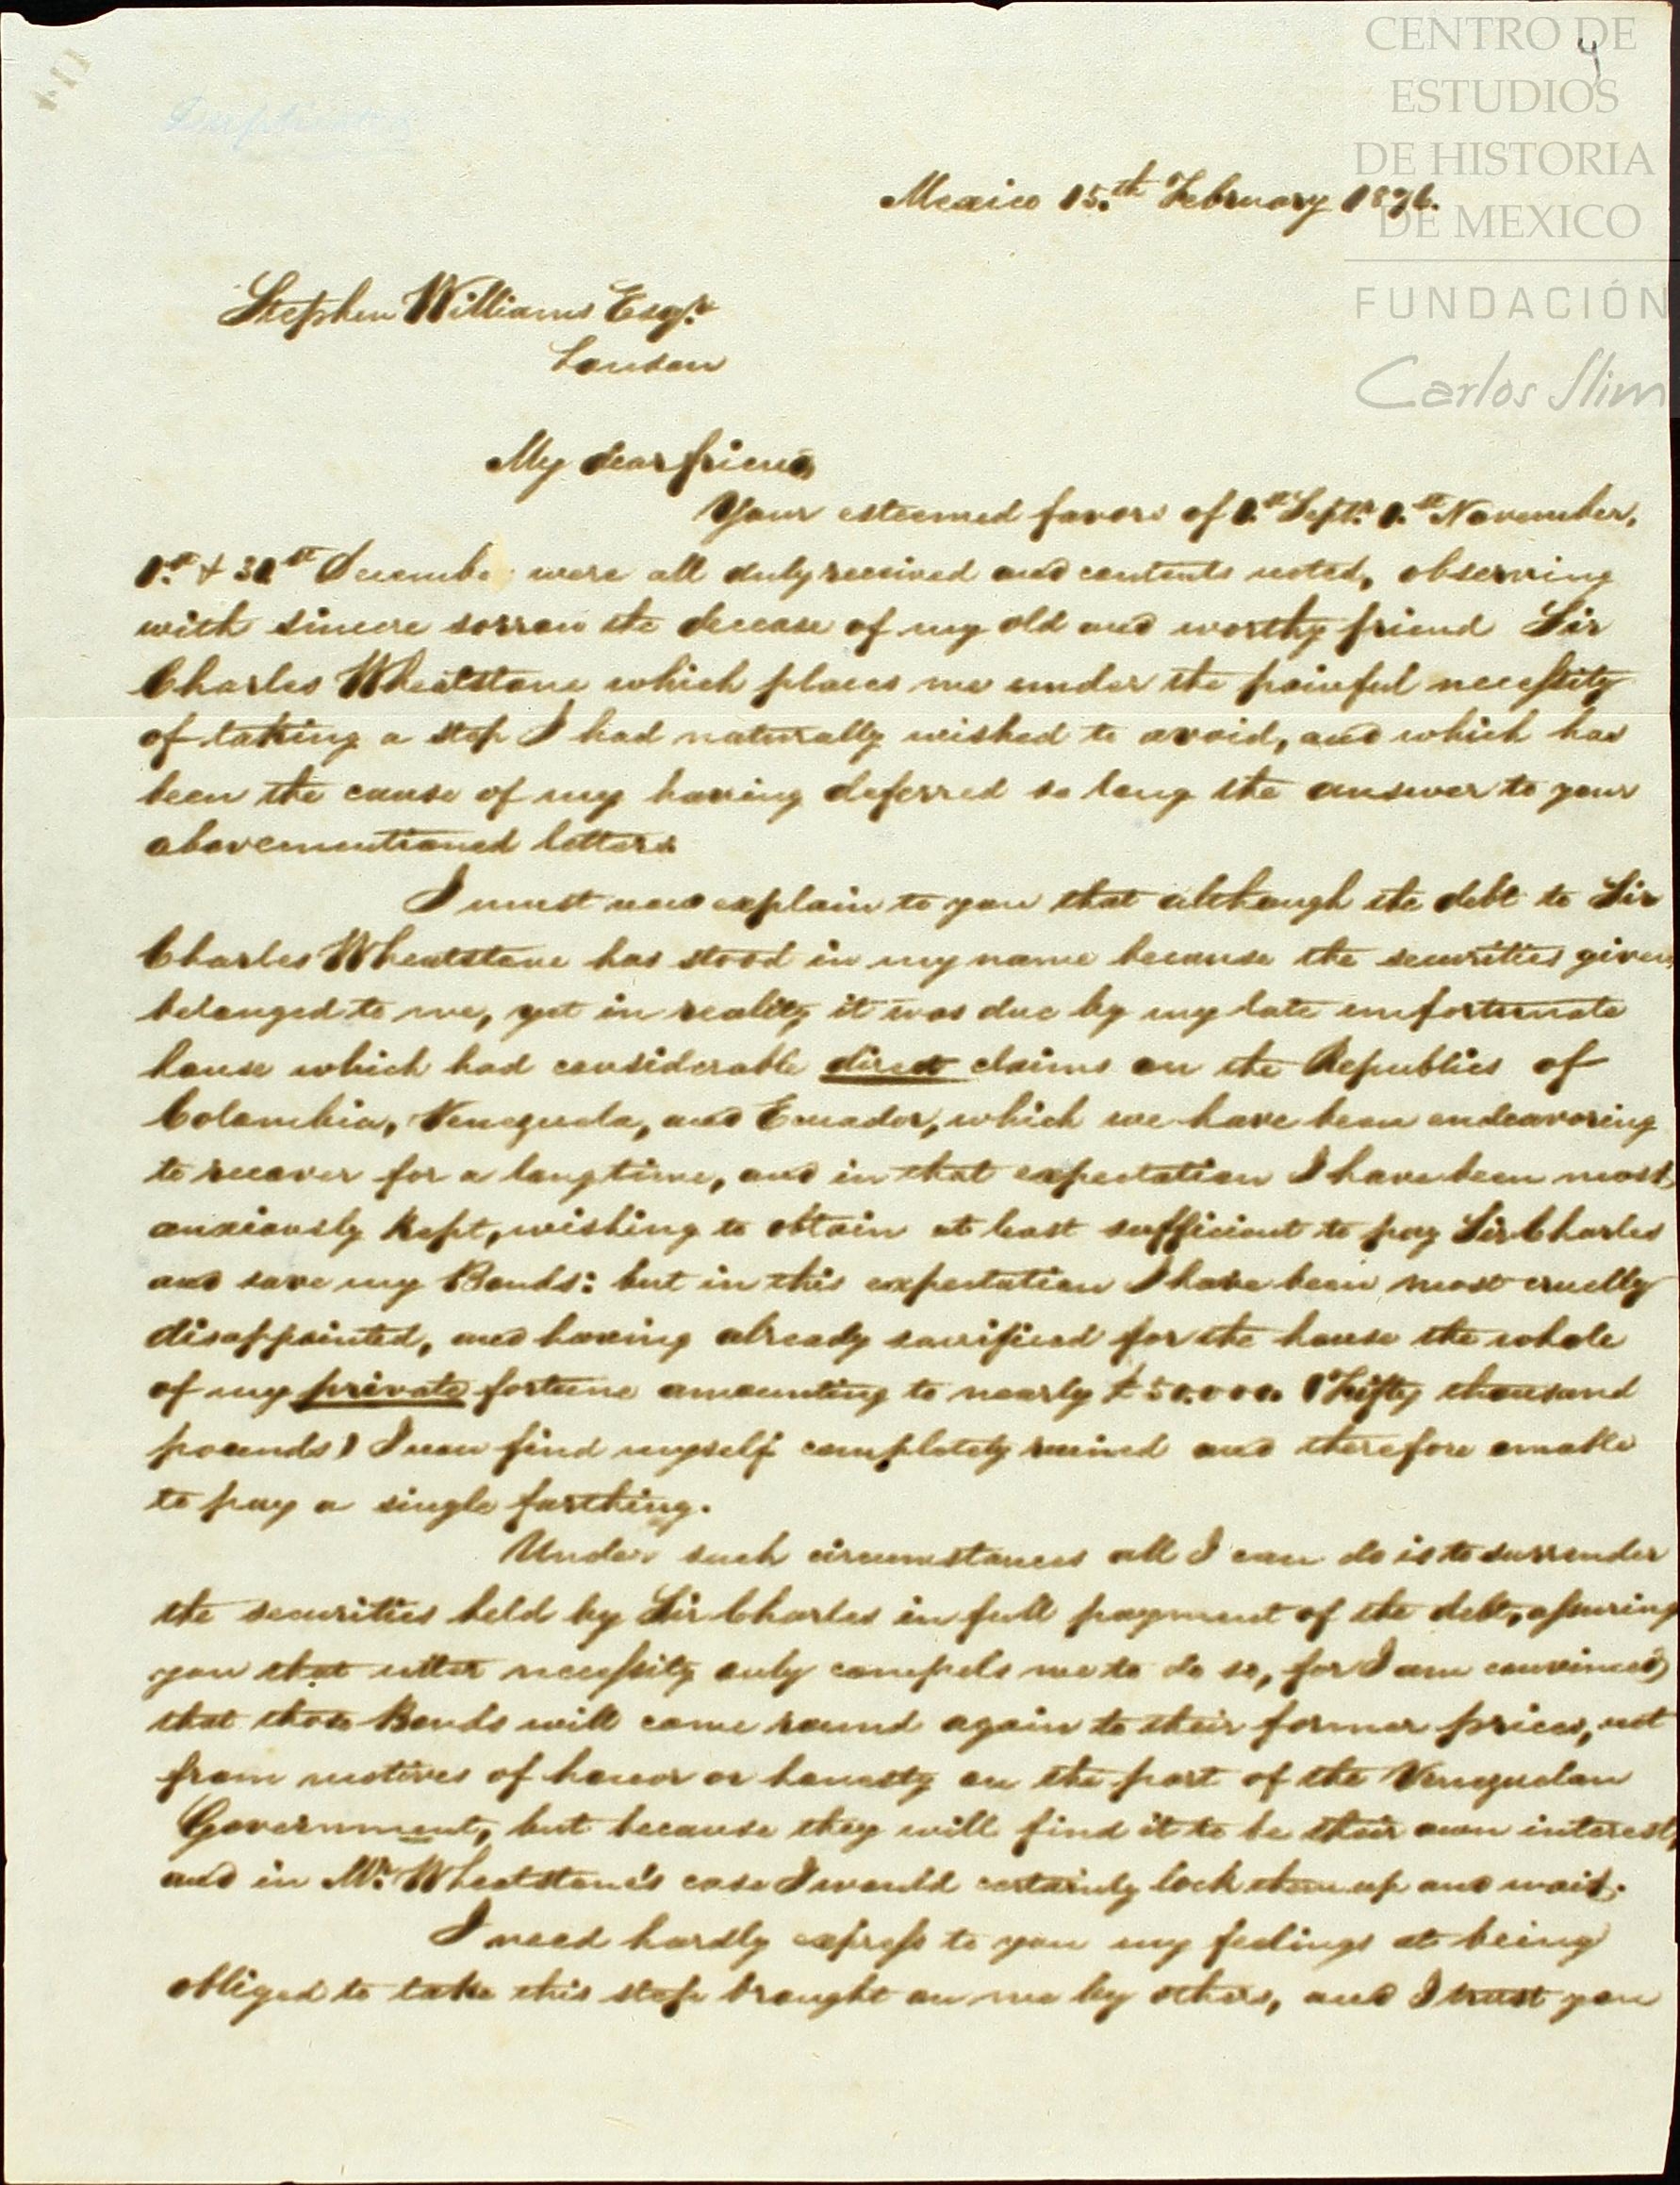 CENTRO DE
ESTUDIOS
DE HISTORIA
DE MEXICO
FUNDACIÓN
Carlos Slim
4
Duplicate
Mexico 15.th February 1876.
Stephen Williams Esqr.
London
My dear friend
Your esteemed favors of 1.st Septr. 1.st November,
1.st & 31st December were all duly received and contents noted, observing
with sincere sorrow the decease of my old and worthy friend Sir
Charles Wheatstone which places me under the painful necessity
of taking a step I had naturally wished to avoid, and which has
been the cause of my having deferred so long the answer to your
abovementioned letters.
I must now explain to you that although the debt to Sir
Charles Wheatstone has stood in my name because the securities given
belonged to me, yet in reality it was due by my late unfortunate
house which had considerable direct claims on the Republics of
Colombia, Venezuela, and Ecuador, which we have been endeavoring
to recover for a long time, and in that expectation I have been most
anxiously kept, wishing to obtain at least sufficient to pay Sir Charles
and save my Bonds: but in this expectation I have been most cruelly
disappointed, and having already sacrificed for the house the whole
of my private fortune amounting to nearly £50.000. (Fifty thousand
pounds) I now find myself completely ruined and therefore unable
to pay a single farthing.
Under such circumstances all I can do is to surrender
the securities held by Sir Charles in full payment of the debt, assuring
you that utter necessity only compels me to do so, for I am convinced
that those Bonds will come round again to their former prices, not
from motives of honor or honesty on the part of the Venezuelan
Government, but because they will find it to be their own interest,
and in Mr. Wheatstone's case I would certainly lock them up and wait.
I need hardly express to you my feelings at being
obliged to take this step brought on me by others, and I trust you